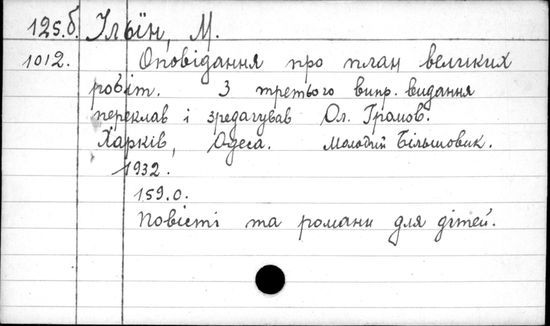 125.б. Ільїн, М.
1012. Оповідання про план великих
робіт. З третього випр. видання
переклав і зредагував Ол. Громов.
Харків, Одеса. Молодий Більшовик.
1932.
159.о.
Повісті та романи для дітей.